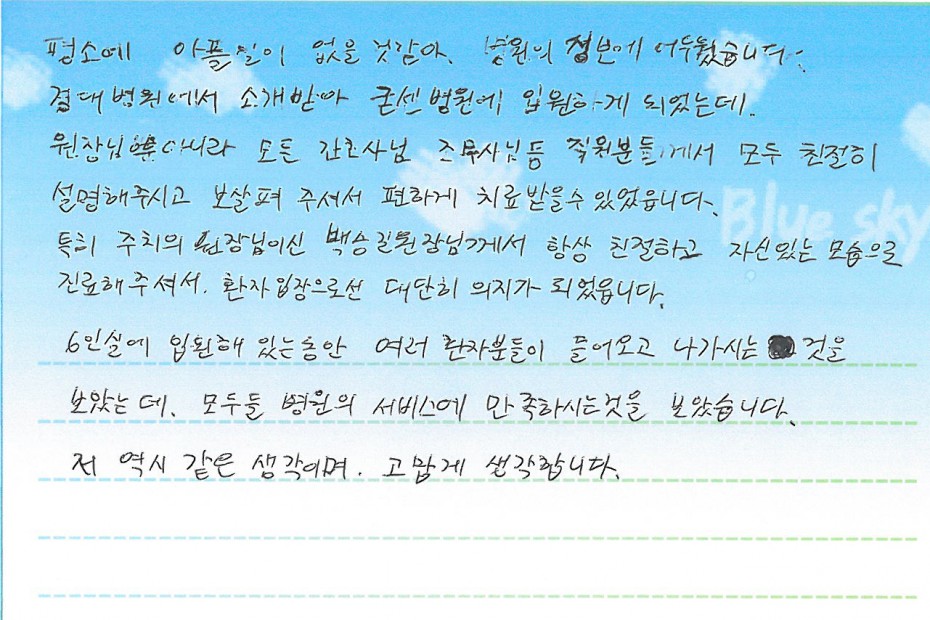 평소에 아플일이 없을 것같아. 병원의 정보에 어두웠습니다.
접대병원에서 소개받아 굳센병원에 입원하게 되었는데.
원장님뿐아니라 모든 간호사님 조무사님등 직원분들께서 모두 친절히
설명해주시고 보살펴 주셔서 편하게 치료받을수 있었읍니다.
특히 주치의 원장님이신 백승길원장님께서 항상 친절하고 자신있는 모습으로
진료해주셔서. 환자입장으로선 대단히 의지가 되었읍니다.
6인실에 입원해 있는동안 여러 환자분들이 들어오고 나가시는 것을
보았는데. 모두들 병원의 서비스에 만족하시는것을 보았습니다.
저 역시 같은 생각이며. 고맙게 생각합니다.
Blue sky